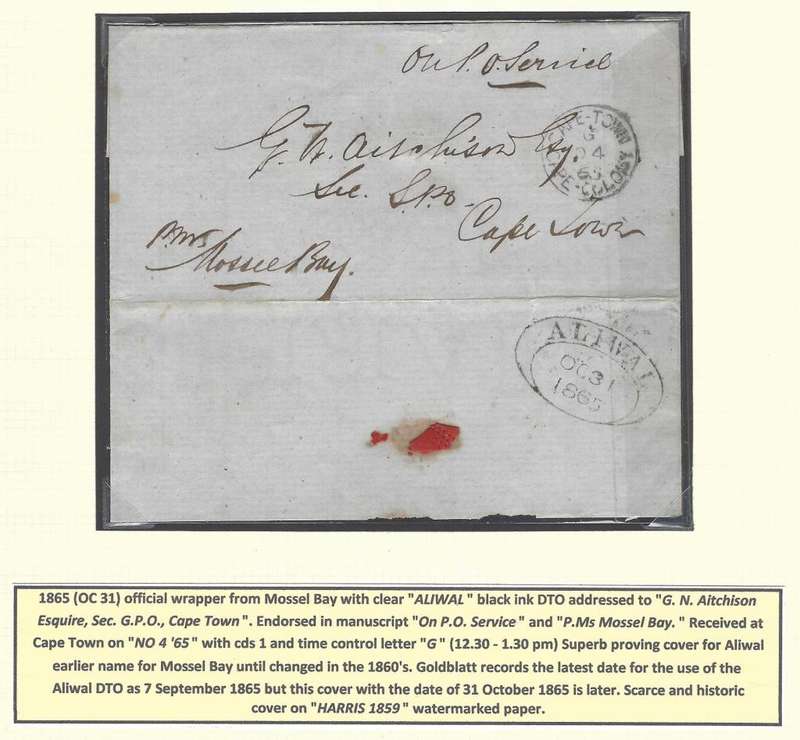 On P. O. Service
G. N. Aitchison Esq
Sec. G.P.O.
Cape Town
P.Ms
Mossel Bay.
CAPE-TOWN
G
O 4
65
CAPE-COLONY
ALIWAL
OC 31
1865
1865 (OC 31) official wrapper from Mossel Bay with clear "ALIWAL" black ink DTO addressed to "G. N. Aitchison
Esquire, Sec. G.P.O., Cape Town". Endorsed in manuscript "On P.O. Service" and "P.Ms Mossel Bay." Received at
Cape Town on "NO 4 '65" with cds 1 and time control letter "G" (12.30 - 1.30 pm) Superb proving cover for Aliwal
earlier name for Mossel Bay until changed in the 1860's. Goldblatt records the latest date for the use of the
Aliwal DTO as 7 September 1865 but this cover with the date of 31 October 1865 is later. Scarce and historic
cover on "HARRIS 1859" watermarked paper.